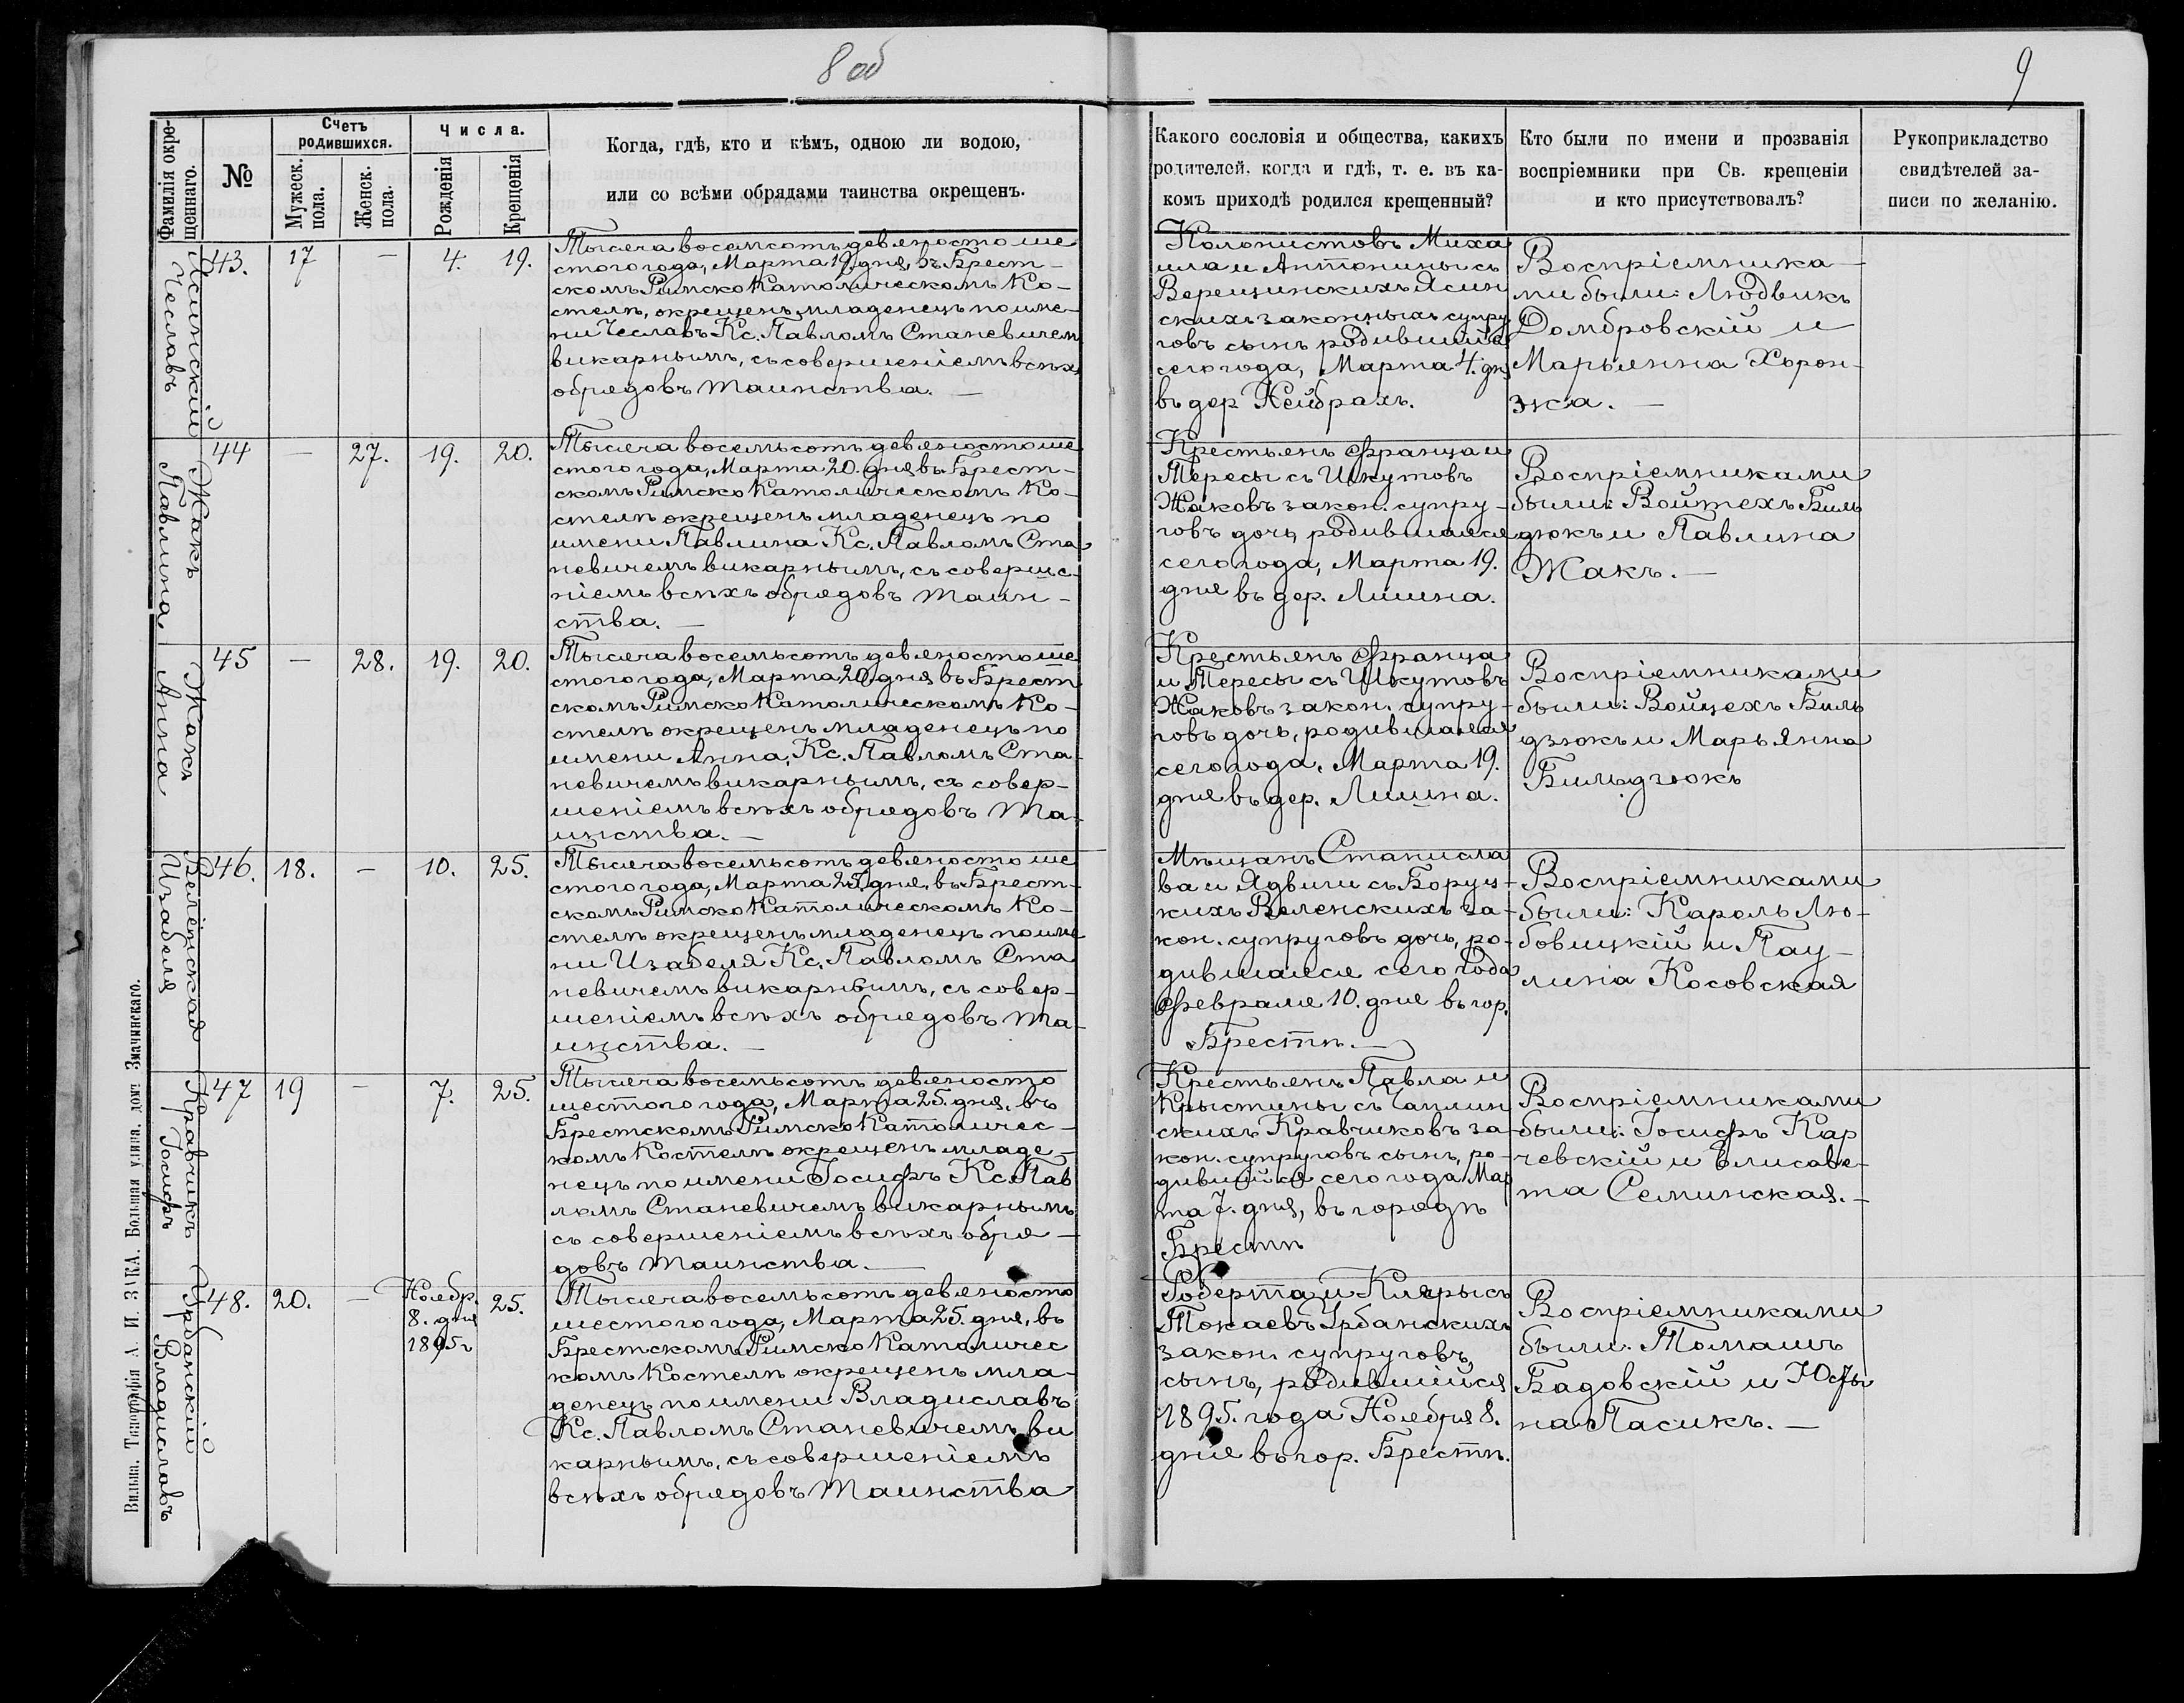 8 об
9
Фамилія окре-
щеннаго.
№
Счетъ
родившихся.
Мужеск.
пола.
Женск.
пола.
Числа.
Рожденія
Крещенія
Когда, гдѣ, кто и кѣмъ, одною ли водою,
или со всѣми обрядами таинства окрещенъ.
Какого сословія и общества, какихъ
родителей, когда и гдѣ, т. е. въ ка-
комъ приходѣ родился крещенный?
Кто были по имени и прозванія
воспріемники при Св. крещеніи
и кто присутствовалъ?
Рукоприкладство
свидѣтелей за-
писи по желанію.
Ясинскій
Чеславъ
43. 17 — 4. 19.
Тысяча восемсотъ девяносто ше
стого года, Марта 19. дня, въ Брест-
скомъ Римско Католическомъ Ко-
стелѣ, окрещенъ младенецъ по име-
ни Чеславъ Кс. Павломъ Станевичем
викарнымъ, съ совершеніемъ всѣхъ
обрядовъ таинства. —
Колонистовъ Миха
ила и Антонины съ
Верещинскихъ Ясин
скихъ законныхъ супру
говъ сынъ родившійся
сего года, Марта 4. дня
въ дер. Нейбрахъ.
Воспріемника-
ми были: Людвикъ
Домбровскій и
Марьянна Хорон-
жа. —
Жакъ
Павлина
44 — 27. 19. 20.
Тысяча восемьсотъ девяносто ше
стого года, Марта 20. дня въ Брест-
скомъ Римско Католическомъ Ко-
стелѣ окрещенъ младенецъ по
имени Павлина Кс. Павломъ Ста
невичемъ викарнымъ, съ соверше-
ніемъ всѣхъ обрядовъ таин-
ства. —
Крестьянъ Франца и
Тересы съ Шкутовъ
Жаковъ закон. супру-
говъ дочь, родившаяся
сего года, Марта 19.
дня въ дер. Лишна.
Воспріемниками
были: Войтехъ Биль
дюкъ и Павлина
Жакъ. —
Жакъ
Анна
45 — 28. 19. 20.
Тысяча восемьсотъ девяносто ше
стого года, Марта 20. дня въ Брест
скомъ Римско Католическомъ Ко-
стелѣ окрещенъ младенецъ по
имени Анна, Кс. Павломъ Ста
невичемъ викарнымъ, съ совер-
шеніемъ всѣхъ обрядовъ Та-
инства. —
Крестьянъ Франца
и Тересы съ Шкутовъ
Жаковъ закон. супру-
говъ дочь, родившаяся
сего года, Марта 19.
дня въ дер. Лишна.
Воспріемниками
были: Войцехъ Биль
дзюкъ и Марьянна
Бильдзюкъ
Веленская
Изабеля
46. 18. — 10. 25.
Тысяча восемьсотъ девяносто ше
стого года, Марта 25. дня, въ Брест-
скомъ Римско Католическомъ Ко-
стелѣ окрещенъ младенецъ по име
ни Изабеля Кс. Павломъ Ста
невичемъ викарнымъ, съ совер-
шеніемъ всѣхъ обрядовъ та-
инства. —
Мѣщанъ Станисла
ва и Ядвиги съ Боруц-
кихъ Веленскихъ за-
кон. супруговъ дочь, ро-
дившаяся сего года
Февраля 10. дня въ гор.
Брестѣ. —
Воспріемниками
были: Кароль Лю-
бовицкій и Пау-
лина Косовская
Кравчикъ
Іосифъ
47 19 — 7. 25.
Тысяча восемьсотъ девяносто
шестого года, Марта 25. дня, въ
Брестскомъ Римско Католичес-
комъ Костелѣ окрещенъ младе-
нецъ по имени Іосифъ Кс. Пав
ломъ Станевичемъ викарнымъ
съ совершеніемъ всѣхъ обря-
довъ таинства. —
Крестьянъ Павла и
Крыстины съ Чаплин
скихъ Кравчиковъ за-
кон. супруговъ сынъ, ро-
дившійся сего года Мар
та 7. дня, въ городѣ
Брестѣ
Воспріемниками
были: Іосифъ Кар
чевскій и Елисаве-
та Семинская. —
Урбанскій
Владиславъ
48. 20. — Ноябр. 8. дня 1895 г 25.
Тысяча восемьсотъ девяносто
шестого года, Марта 25. дня, въ
Брестскомъ Римско Католичес
комъ Костелѣ окрещенъ мла-
денецъ по имени Владиславъ
Кс. Павломъ Станевичемъ ви
карнымъ, съ совершеніемъ
всѣхъ обрядовъ Таинства
Роберта и Клярысъ
Токаевъ Урбанскихъ
закон. супруговъ,
сынъ, родившійся
1895. года Ноября 8.
дня въ гор. Брестѣ.
Воспріемниками
были: Томашъ
Бадовскій и
на Пасикъ. —
Вильна. Типографія А. И. ЗАКА. Большая улица, домъ Значинскаго.